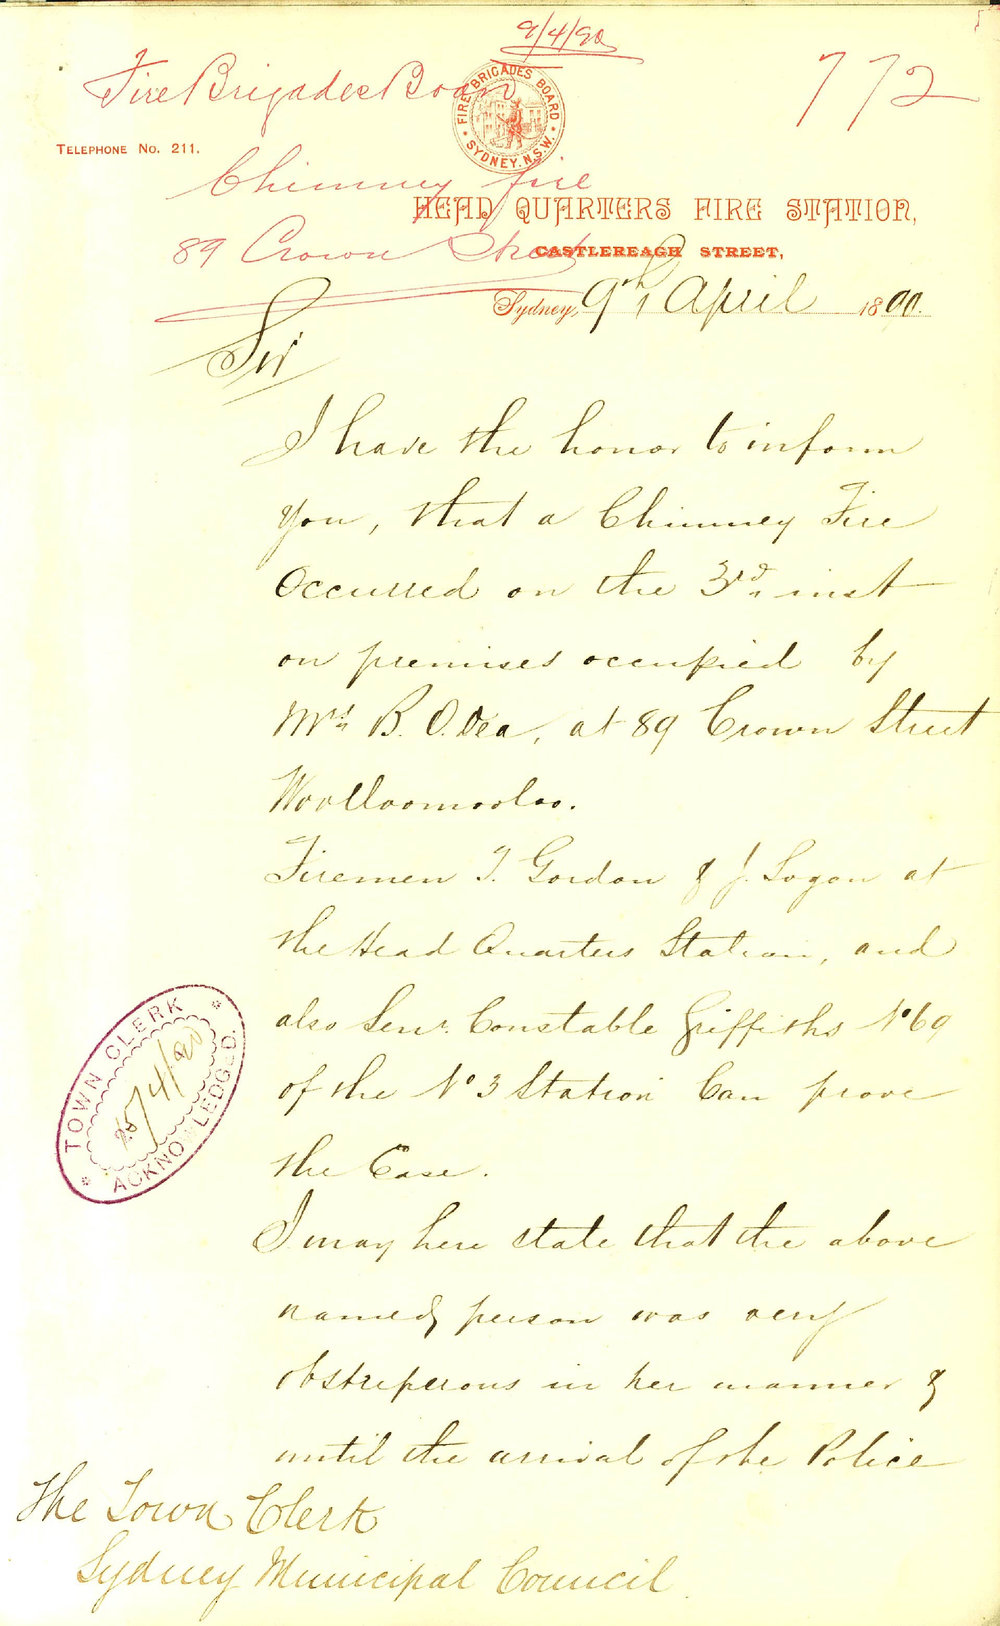 9/4/90
Fire Brigades Board
772
FIRE BRIGADES BOARD
SYDNEY. N.S.W.
TELEPHONE NO. 211.
Chimney fire
HEAD QUARTERS FIRE STATION,
89 Crown Street
CASTLEREAGH STREET,
Sydney, 9th April 1890.
Sir
I have the honor to inform
you, that a Chimney Fire
Occurred on the 3rd inst
on premises occupied by
Mrs B. O.Dea, at 89 Crown Street
Woolloomooloo.
Firemen T. Gordon & J. Logan at
the Head Quarters Station, and
also Senr. Constable Griffiths No 69
of the No 3 Station Can prove
the Case.
TOWN CLERK
/4/90
ACKNOWLEDGED.
I may here state that the above
named person was very
obstreperous in her manner &
until the arrival of the Police
The Town Clerk
Sydney Municipal Council.